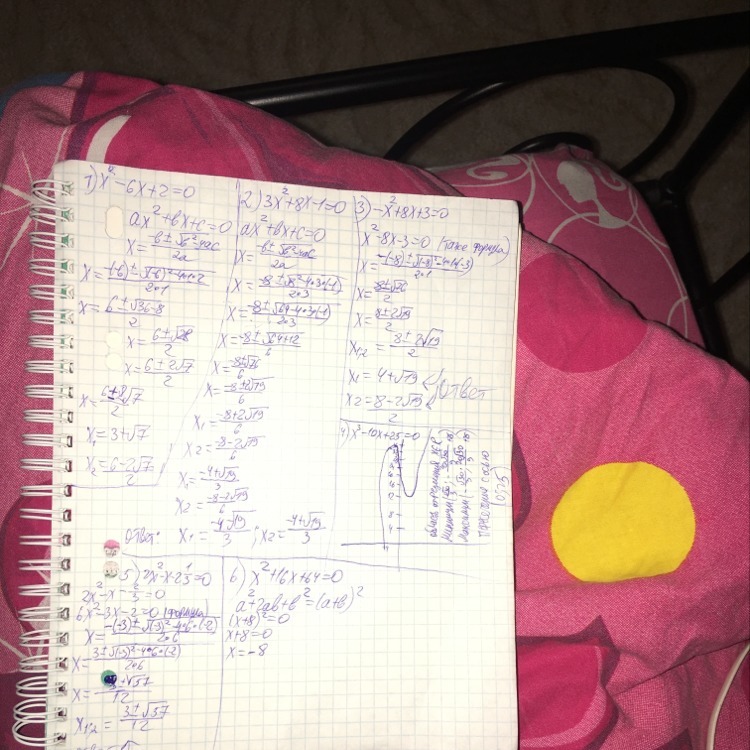 1) x² - 6x + 2 = 0
ax² + bx + c = 0
x = (-b ± √b² - 4ac) / 2a
x = (-(-6) ± √(-6)² - 4·1·2) / 2·1
x = (6 ± √36 - 8) / 2
x = (6 ± √28) / 2
x = (6 ± 2√7) / 2
x₁ = 3 + √7
x₂ = (6 - 2√7) / 2
2) 3x² + 8x - 1 = 0
ax² + bx + c = 0
x = (-b ± √b² - 4ac) / 2a
x = (-8 ± √8² - 4·3·(-1)) / 2·3
x = (-8 ± √64 - 4·3·(-1)) / 2·3
x = (-8 ± √64 + 12) / 6
x = (-8 ± √76) / 6
x = (-8 ± 2√19) / 6
x₁ = (-8 + 2√19) / 6
x₂ = (-8 - 2√19) / 6
x₁ = (-4 + √19) / 3
x₂ = (-8 - 2√19) / 6
Ответ: x₁ = (-4 √19) / 3 ; x₂ = (-4 + √19) / 3
3) -x² + 8x + 3 = 0
x² - 8x - 3 = 0 (также формула)
x = (-(-8) ± √(-8)² - 4·1·(-3)) / 2·1
x = (8 ± √76) / 2
x = (8 ± 2√19) / 2
x₁,₂ = (8 ± 2√19) / 2
x₁ = 4 + √19
x₂ = (8 - 2√19) / 2
Ответ
4) x³ - 10x + 25 = 0
5) 2x² - x - 2
2x² - x - 2/3 = 0
6x² - 3x - 2 = 0 (формула)
x = (-(-3) ± √(-3)² - 4·6·(-2)) / 2·6
x = (3 ± √(-3)² - 4·6·(-2)) / 2·6
x = (3 ± √57) / 12
x₁,₂ = (3 ± √57) / 12
6) x² + 16x + 64 = 0
a² + 2ab + b² = (a+b)²
(x+8)² = 0
x + 8 = 0
x = -8